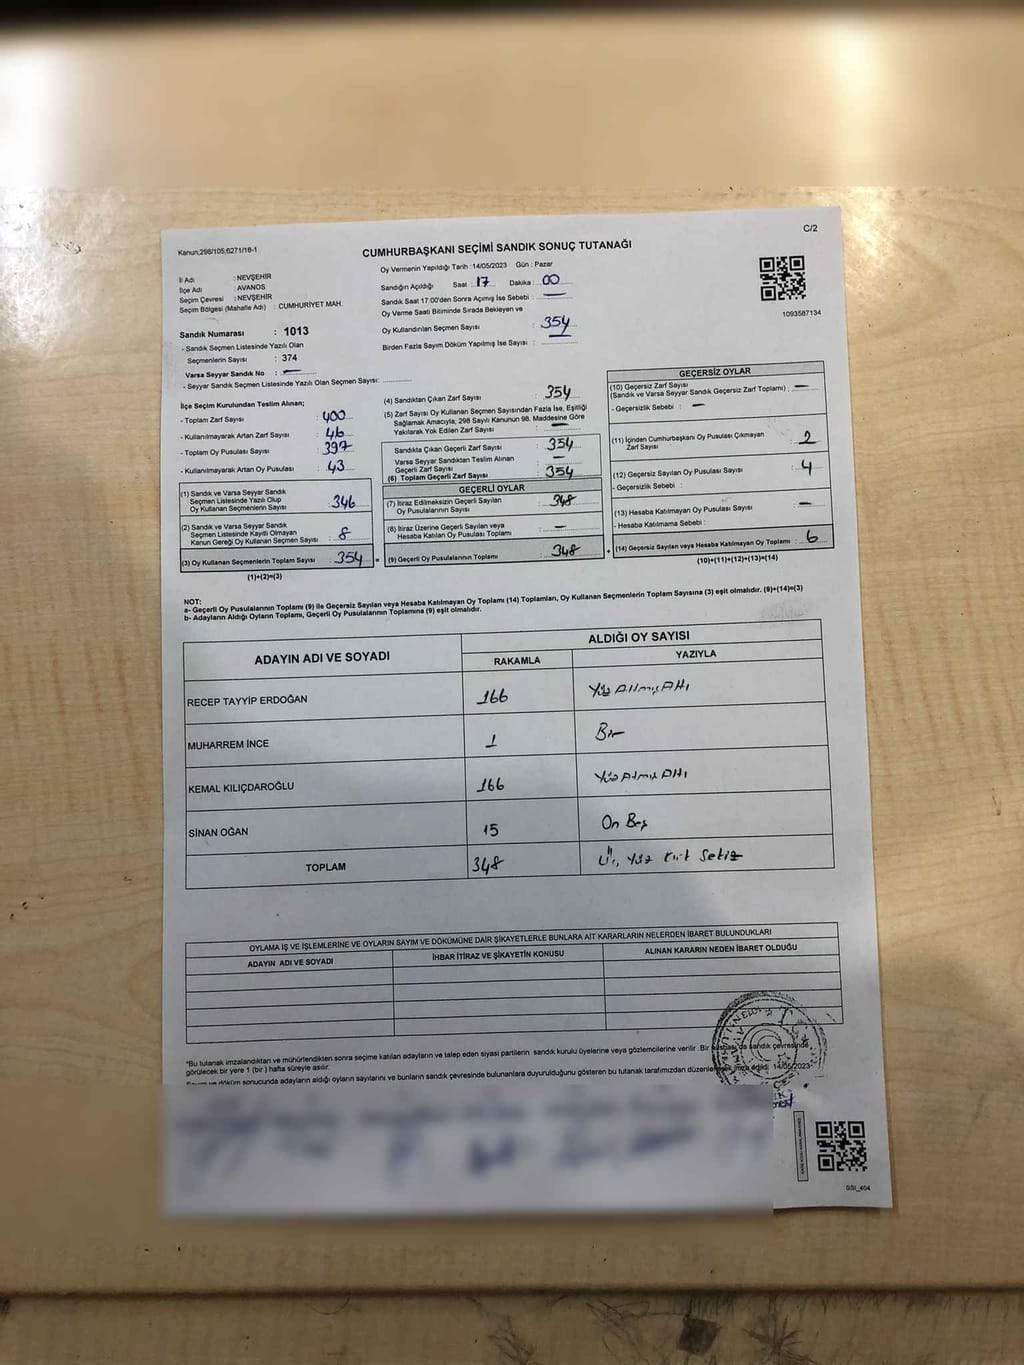 C/2
Kanun;298/105;6271/18-1
CUMHURBAŞKANI SEÇİMİ SANDIK SONUÇ TUTANAĞI
İl Adı : NEVŞEHİR
İlçe Adı : AVANOS
Seçim Çevresi : NEVŞEHİR
Seçim Bölgesi (Mahalle Adı) : CUMHURİYET MAH.
Sandık Numarası : 1013
- Sandık Seçmen Listesinde Yazılı Olan
Seçmenlerin Sayısı : 374
Varsa Seyyar Sandık No : —
- Seyyar Sandık Seçmen Listesinde Yazılı Olan Seçmen Sayısı: ............
Oy Vermenin Yapıldığı Tarih :14/05/2023 Gün : Pazar
Sandığın Açıldığı Saat : 17 Dakika : 00
Sandık Saat 17:00'den Sonra Açımış İse Sebebi : —
Oy Verme Saati Bitiminde Sırada Bekleyen ve
Oy Kullandırılan Seçmen Sayısı : 354
Birden Fazla Sayım Döküm Yapılmış İse Sayısı : ............
1093587134
İlçe Seçim Kurulundan Teslim Alınan;
- Toplam Zarf Sayısı : 400
- Kullanılmayarak Artan Zarf Sayısı : 46
- Toplam Oy Pusulası Sayısı : 397
- Kullanılmayarak Artan Oy Pusulası : 43
(1) Sandık ve Varsa Seyyar Sandık
Seçmen Listesinde Yazılı Olup
Oy Kullanan Seçmenlerin Sayısı : 346
(2) Sandık ve Varsa Seyyar Sandık
Seçmen Listesinde Kaydı Olmayan
Kanun Gereği Oy Kullanan Seçmen Sayısı : 8
(3) Oy Kullanan Seçmenlerin Toplam Sayısı : 354
(1)+(2)=(3)
(4) Sandıktan Çıkan Zarf Sayısı : 354
(5) Zarf Sayısı Oy Kullanan Seçmen Sayısından Fazla İse, Eşitliği
Sağlamak Amacıyla, 298 Sayılı Kanunun 98. Maddesine Göre
Yakılarak Yok Edilen Zarf Sayısı : —
Sandıkta Çıkan Geçerli Zarf Sayısı : 354
Varsa Seyyar Sandıktan Teslim Alınan
Geçerli Zarf Sayısı : —
(6) Toplam Geçerli Zarf Sayısı : 354
GEÇERLİ OYLAR
(7) İtiraz Edilmeksizin Geçerli Sayılan
Oy Pusulalarının Sayısı : 348
(8) İtiraz Üzerine Geçerli Sayılan veya
Hesaba Katılan Oy Pusulası Toplamı : —
= (9) Geçerli Oy Pusulalarının Toplamı : 348
GEÇERSİZ OYLAR
(10) Geçersiz Zarf Sayısı
(Sandık ve Varsa Seyyar Sandık Geçersiz Zarf Toplamı) : —
- Geçersizlik Sebebi : —
(11) İçinden Cumhurbaşkanı Oy Pusulası Çıkmayan
Zarf Sayısı : 2
(12) Geçersiz Sayılan Oy Pusulası Sayısı : 4
- Geçersizlik Sebebi :
(13) Hesaba Katılmayan Oy Pusulası Sayısı : —
- Hesaba Katılmama Sebebi :
+ (14) Geçersiz Sayılan veya Hesaba Katılmayan Oy Toplamı : 6
(10)+(11)+(12)+(13)=(14)
NOT:
a- Geçerli Oy Pusulalarının Toplamı (9) ile Geçersiz Sayılan veya Hesaba Katılmayan Oy Toplamı (14) Toplamları, Oy Kullanan Seçmenlerin Toplam Sayısına (3) eşit olmalıdır. (9)+(14)=(3)
b- Adayların Aldığı Oyların Toplamı, Geçerli Oy Pusulalarının Toplamına (9) eşit olmalıdır.
ADAYIN ADI VE SOYADI ALDIĞI OY SAYISI
RAKAMLA YAZIYLA
RECEP TAYYİP ERDOĞAN 166 Yüz Altmış Altı
MUHARREM İNCE 1 Bir
KEMAL KILIÇDAROĞLU 166 Yüz Altmış Altı
SİNAN OĞAN 15 On Beş
TOPLAM 348 Üç Yüz Kırk Sekiz
OYLAMA İŞ VE İŞLEMLERİNE VE OYLARIN SAYIM VE DÖKÜMÜNE DAİR ŞİKAYETLERLE BUNLARA AİT KARARLARIN NELERDEN İBARET BULUNDUKLARI
ADAYIN ADI VE SOYADI İHBAR İTİRAZ VE ŞİKAYETİN KONUSU ALINAN KARARIN NEDEN İBARET OLDUĞU
*Bu tutanak imzalandıktan ve mühürlendikten sonra seçime katılan adayların ve talep eden siyasi partilerin sandık kurulu üyelerine veya gözlemcilerine verilir. Bir da sandık çevresinde
görülecek bir yere 1 (bir ) hafta süreyle asılır.
Sayım ve döküm sonucunda adayların aldığı oyların sayılarını ve bunların sandık çevresinde bulunanlara duyurulduğunu gösteren bu tutanak tarafımızdan imza edildi. 14/05/2023
GSI_404